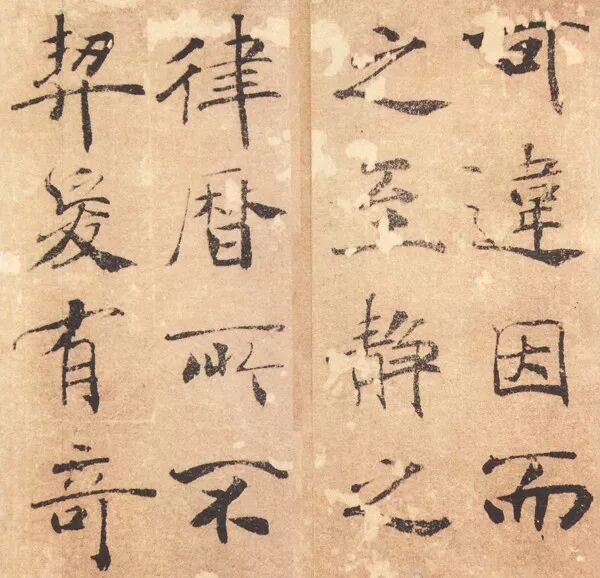 可違因而
之至静之
律曆所不
契爰有奇